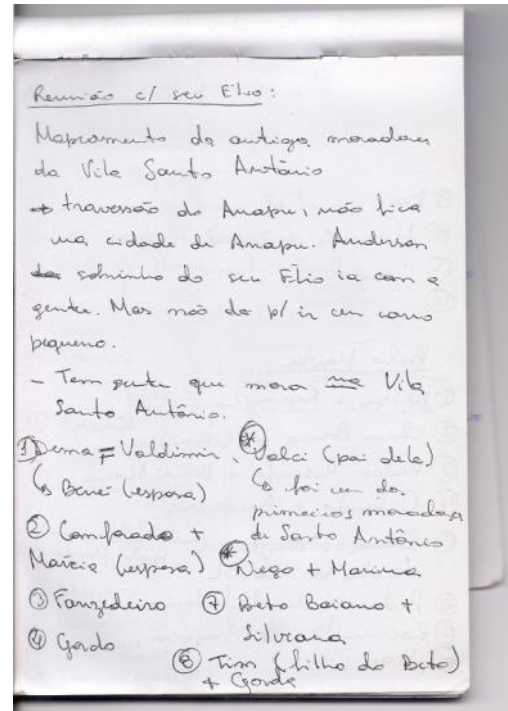 Reunião c/ seu Elio:
Mapeamento de antigos moradores
da Vila Santo Antônio
→ travessão do Anapu, não fica
na cidade de Anapu. Anderson
sobrinho do seu Elio ia com a
gente. Mas não da p/ ir em carro
pequeno.
- Tem gente que mora na Vila
Santo Antônio.
① Dema = Valdimir
↳ Benei (esposa)
② Comprado +
Márcia (esposa)
③ Fanzedeiro
④ Gordo
* Valci (pai dela)
↳ foi um dos
primeiros moradores
de Santo Antônio
* Nego + Marina
⑦ Beto Baiano +
Silvana
⑧ Tim (filho do Beto)
+ Gorda